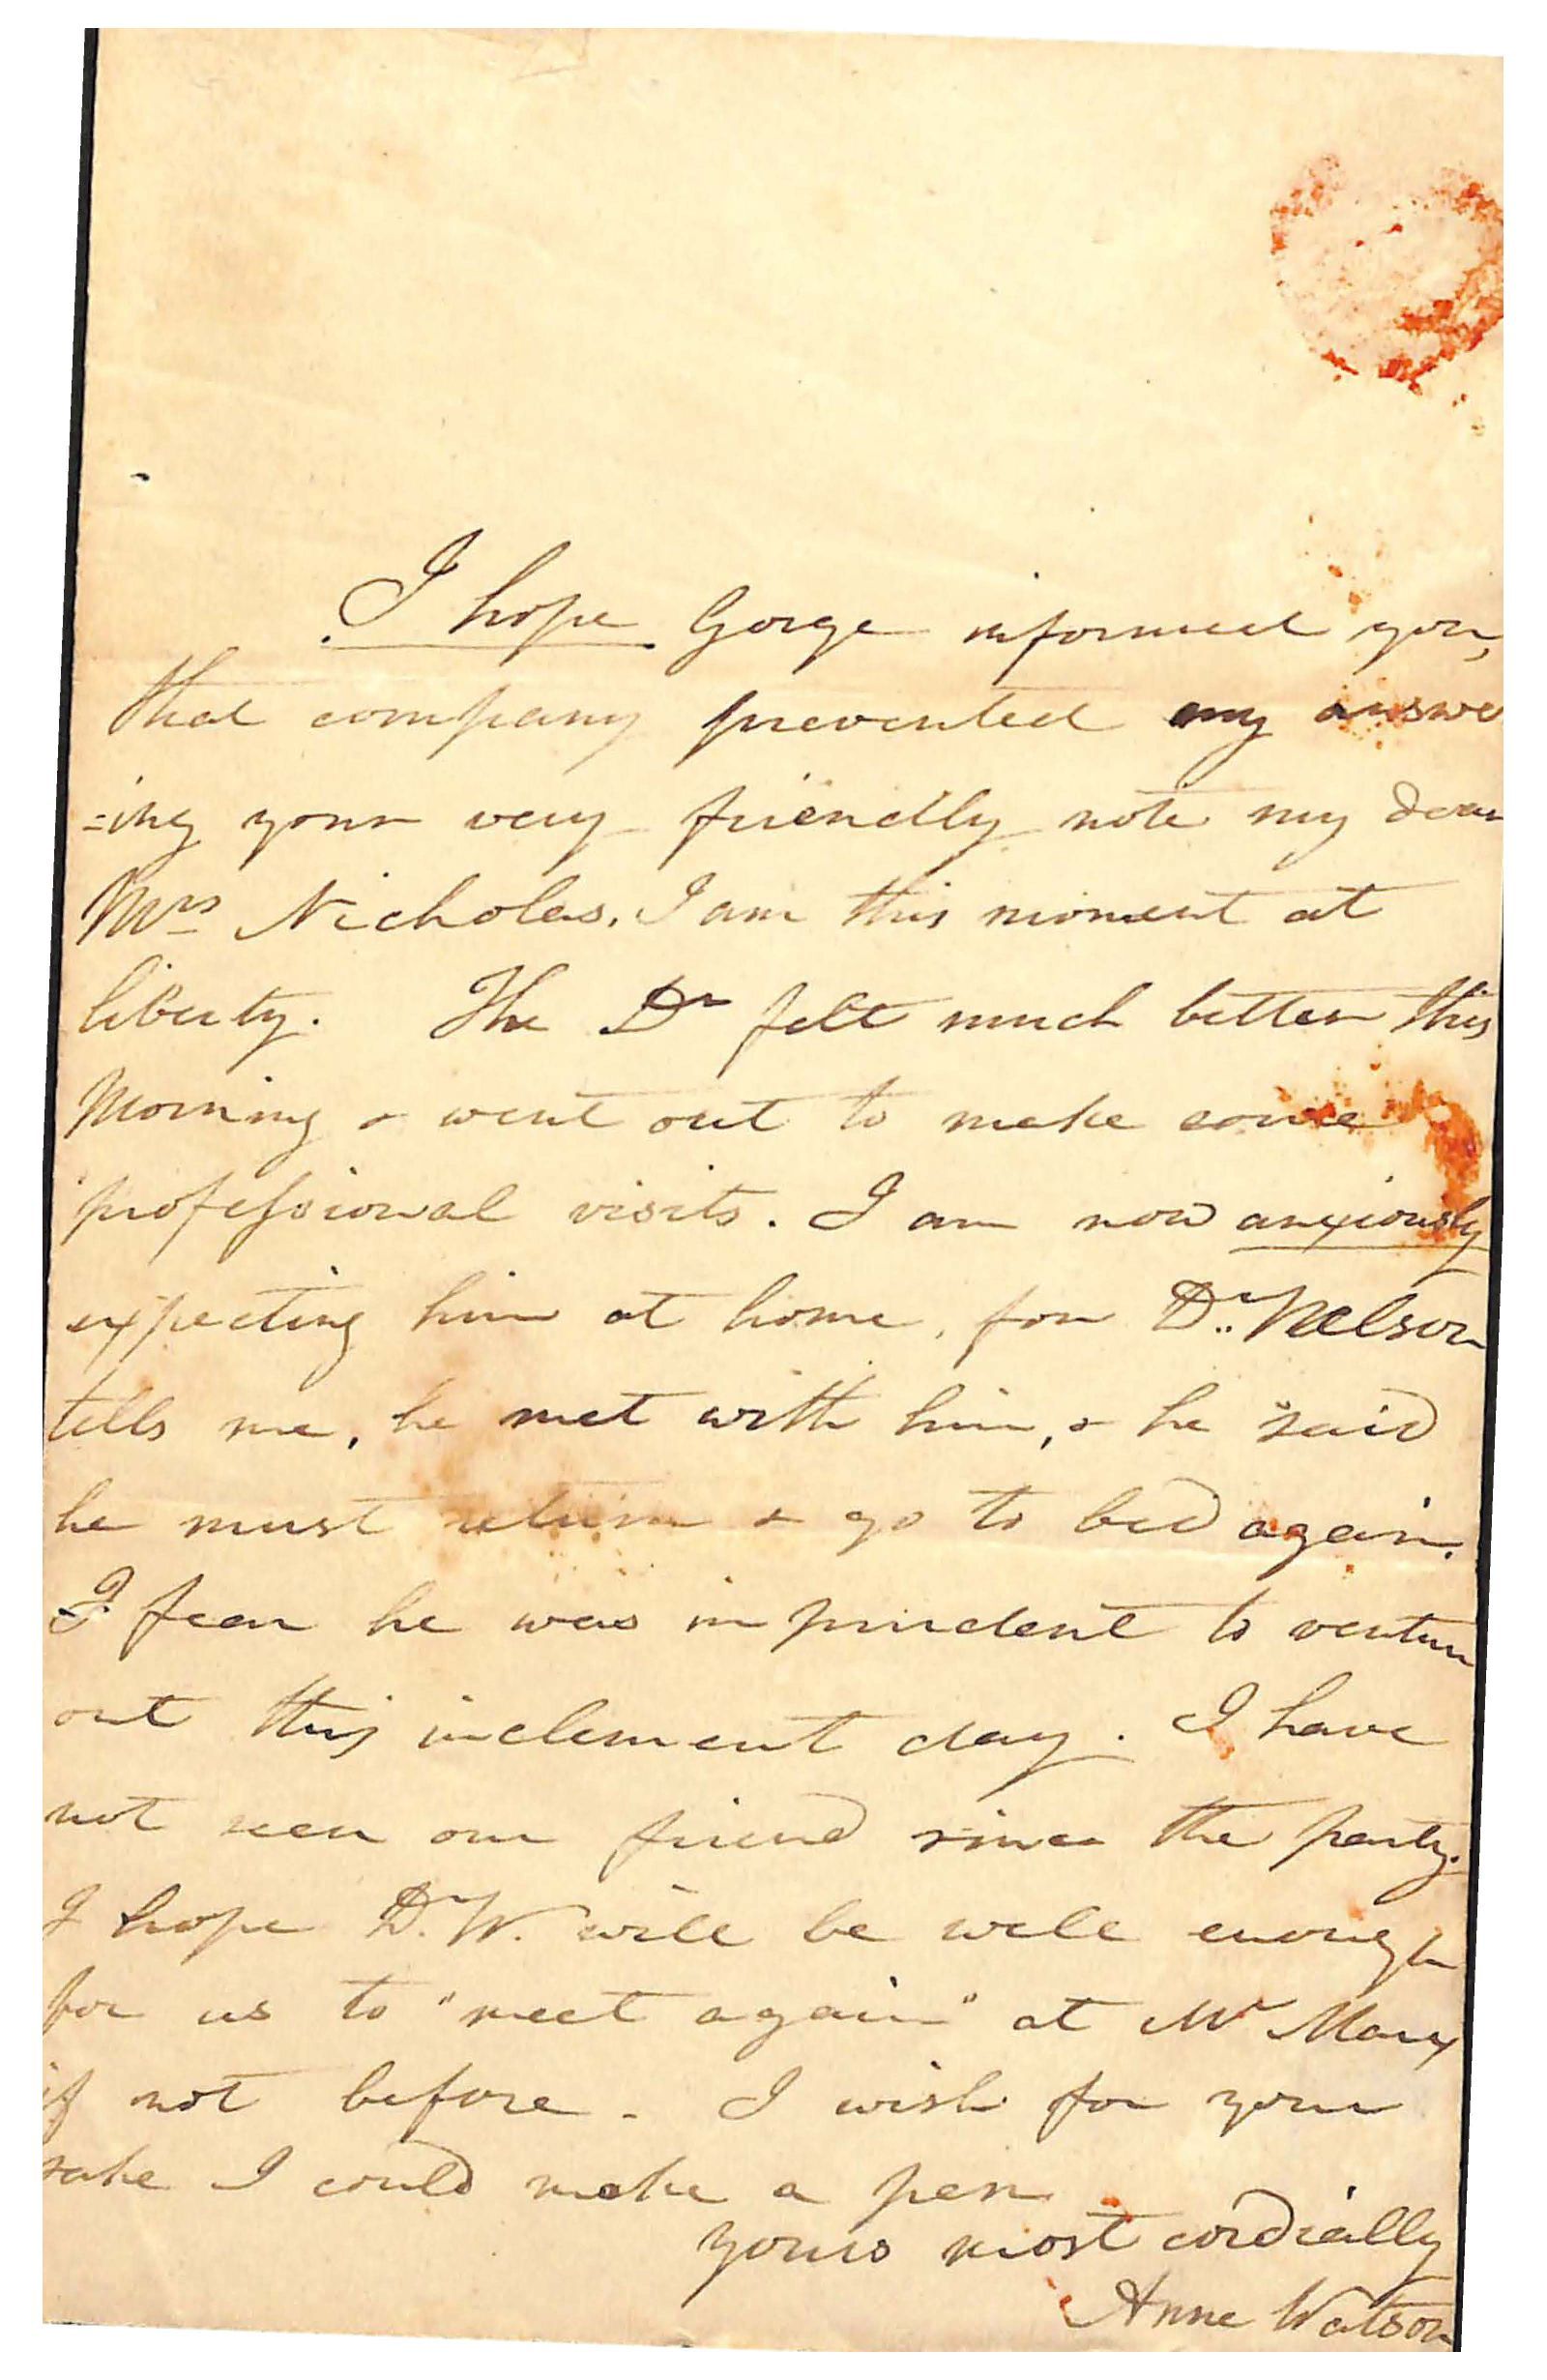 I hope Gorge informed you,
that company prevented my answe
=ing your very friendly note my dear
Mrs Nicholas. I am this moment at
liberty. The Dr felt much better this
Morning & went out to make some
professional visits. I am now anxiously
expecting him at home, for Dr. Nelson
tells me, he met with him, & he said
he must return & go to bed again.
I fear he was imprudent to venture
out this inclement day. I have
not seen our friend since the party.
I hope Dr. W. will be well enough
for us to "meet again" at Mr Marx
if not before. I wish for your
sake I could make a pen
yours most cordially
Anne Watson